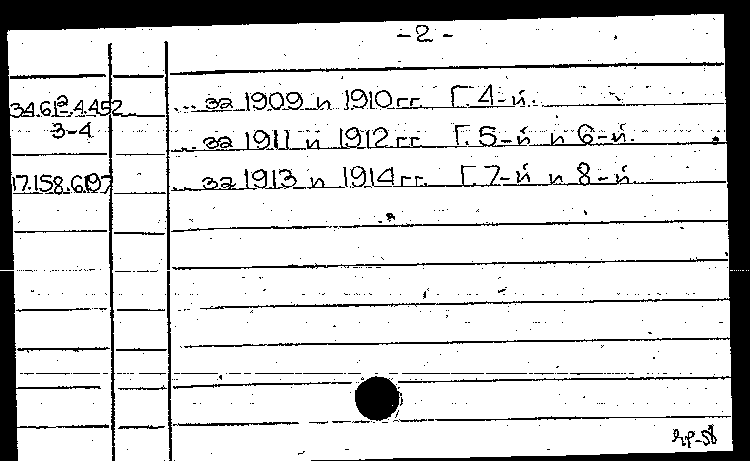 -2-
34.61².4.452 ... за 1909 и 1910 гг. Г. 4-й.
3-4 ... за 1911 и 1912 гг. Г. 5-й и 6-й.
17.158.6.197 ... за 1913 и 1914 гг. Г. 7-й и 8-й.